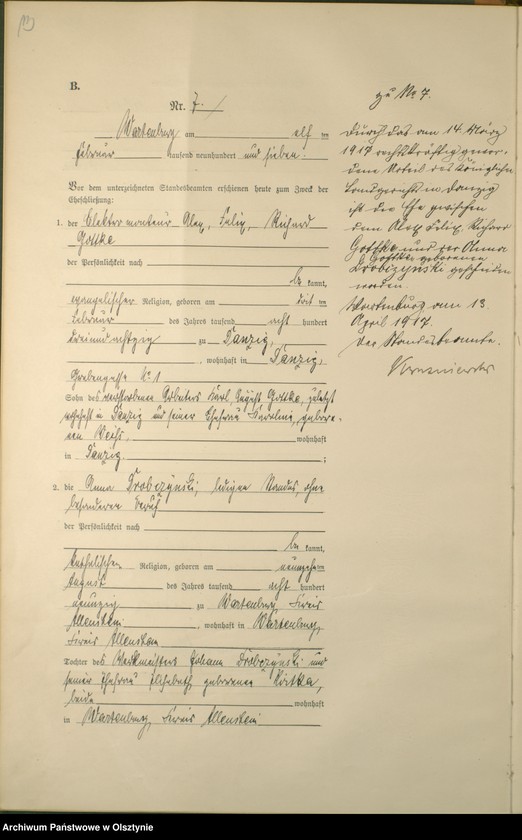 B.
Nr. 7.
Wartenburg am elf ten
Februar tausend neunhundert und sieben.
Vor dem unterzeichneten Standesbeamten erschienen heute zum Zweck der
Eheschließung:
1. der Elektromonteur Alex, Felix, Richard
Gottke
der Persönlichkeit nach
be kannt,
evangelischer Religion, geboren am drit ten
Februar des Jahres tausend acht hundert
dreiundachtzig zu Danzig,
, wohnhaft in Danzig,
No 1
Sohn des verstorbenen Arbeiters Karl August Gottke, zuletzt
wohnhaft in Danzig und seiner Ehefrau gebore-
nen wohnhaft
in Danzig. ;
2. die Anna Drobczynski, ledigen Standes, ohne
besonderen Beruf
der Persönlichkeit nach
be kannt,
katholischer Religion, geboren am neunzehn ten
August des Jahres tausend acht hundert
neunzig zu Wartenburg, Kreis
Allenstein, wohnhaft in Wartenburg,
Kreis Allenstein
Tochter des Werkmeisters Johann Drobczynski und
seiner Ehefrau Elisabeth geborenen
beide wohnhaft
in Wartenburg, Kreis Allenstein
zu No 7.
Durch das am 14. März
1917 rechtskräftig gewor-
dene Urteil des Königlichen
Landgerichts in Danzig
ist die Ehe zwischen
dem Alex Felix Richard
Gottke und der Anna
Gottke geborenen
Drobczynski geschieden
worden.
Wartenburg am 13
April 1917.
Der Standesbeamte.
Archiwum Państwowe w Olsztynie